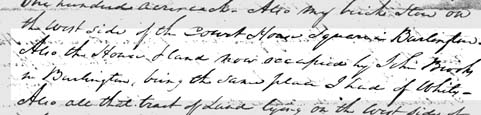 one hundred acres each. Also my brick Store on
the west side of the Court House Square in Burlington.
Also the House & land now occupied by John
in Burlington, being the same place I had of
Also all that tract of Land lying on the West side of